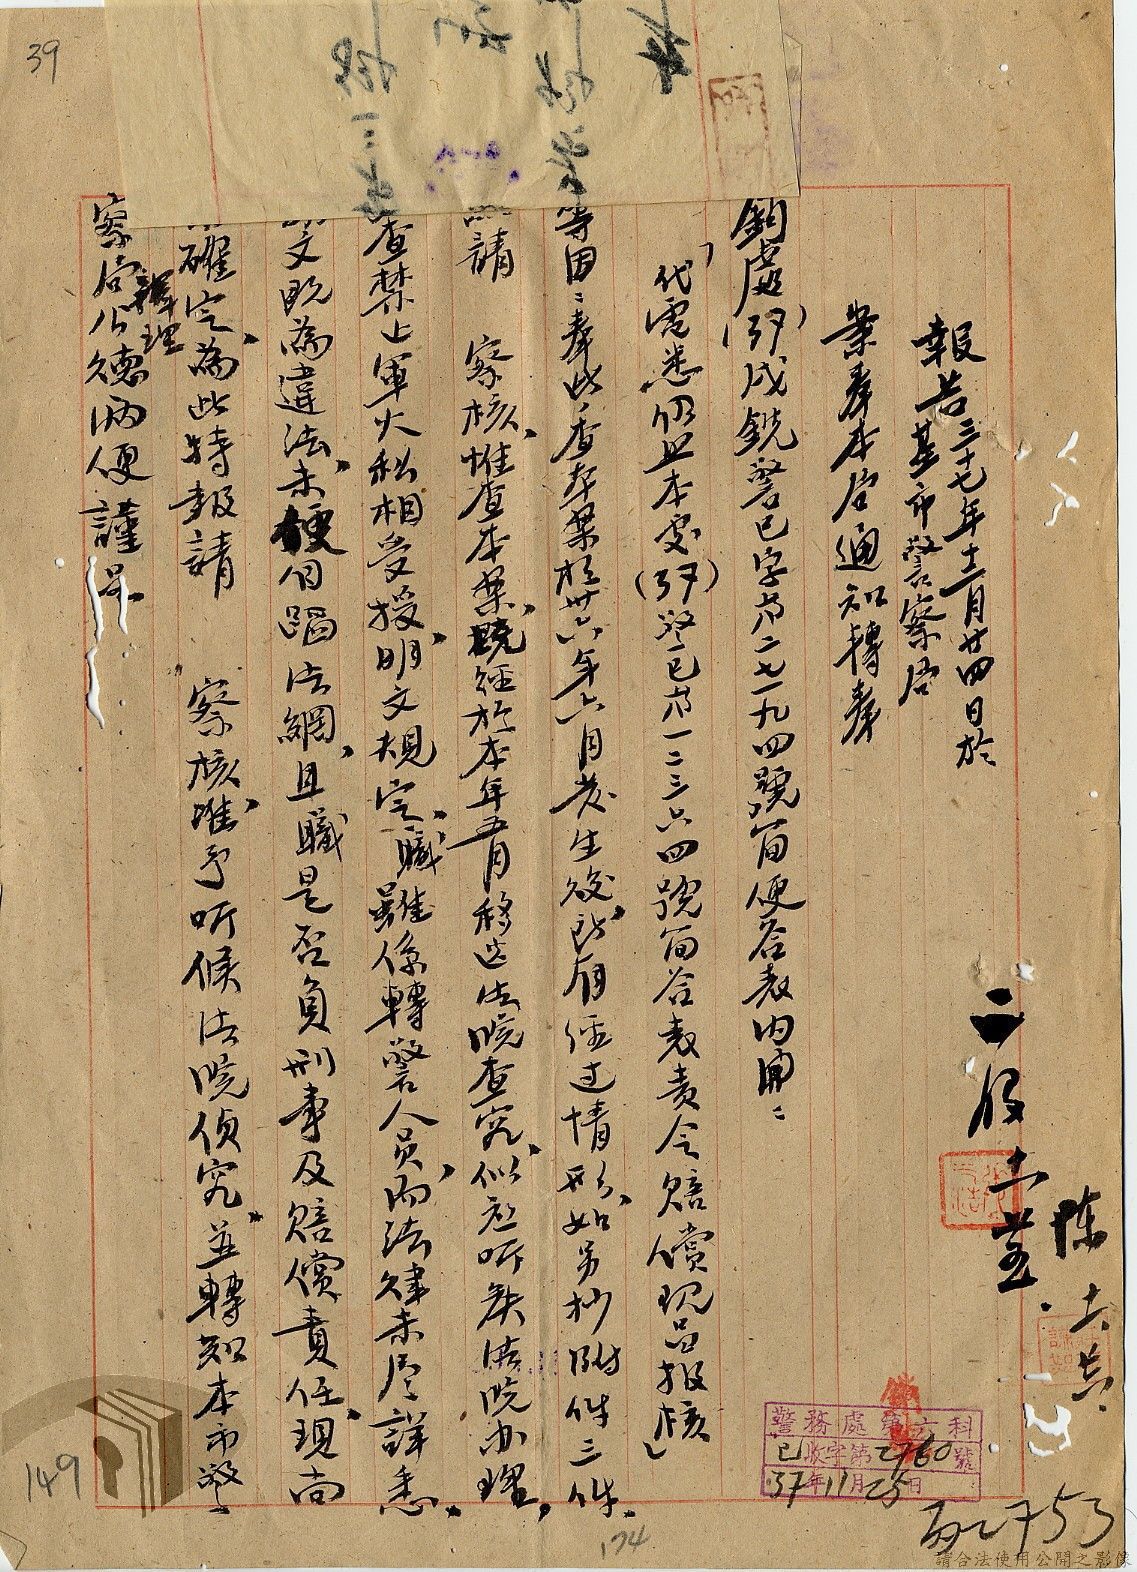 39
報告 三十七年十一月廿四日於
基市警察局
業奉本局通知轉奉
鈞處(37)戌銑警巳字第二七一九四號箇便答表內開：
「代電悉仍照本處(37)警巳第一二三六四號箇答表責令賠償現品報核」
等因；奉此，查本案於卅六年六月發生後，所有經過情形，如另抄附件三件。
請　察核，惟查本案既經於本年五月移送法院查究，似應听候法院办理，
查禁止軍火私相受授，明文規定，職雖係轉警人員，而法律未尽詳悉，
文既為違法，未便自蹈法網，且職是否負刑事及賠償責任，現尚
確定，為此特報請　察核，准予听候法院偵究，並轉知本市警
察局辦理公德兩便謹呈
二股
陳
警務處第六科
巳收字第2760號
37年11月25日
2753
174
149
請合法使用公開之影像